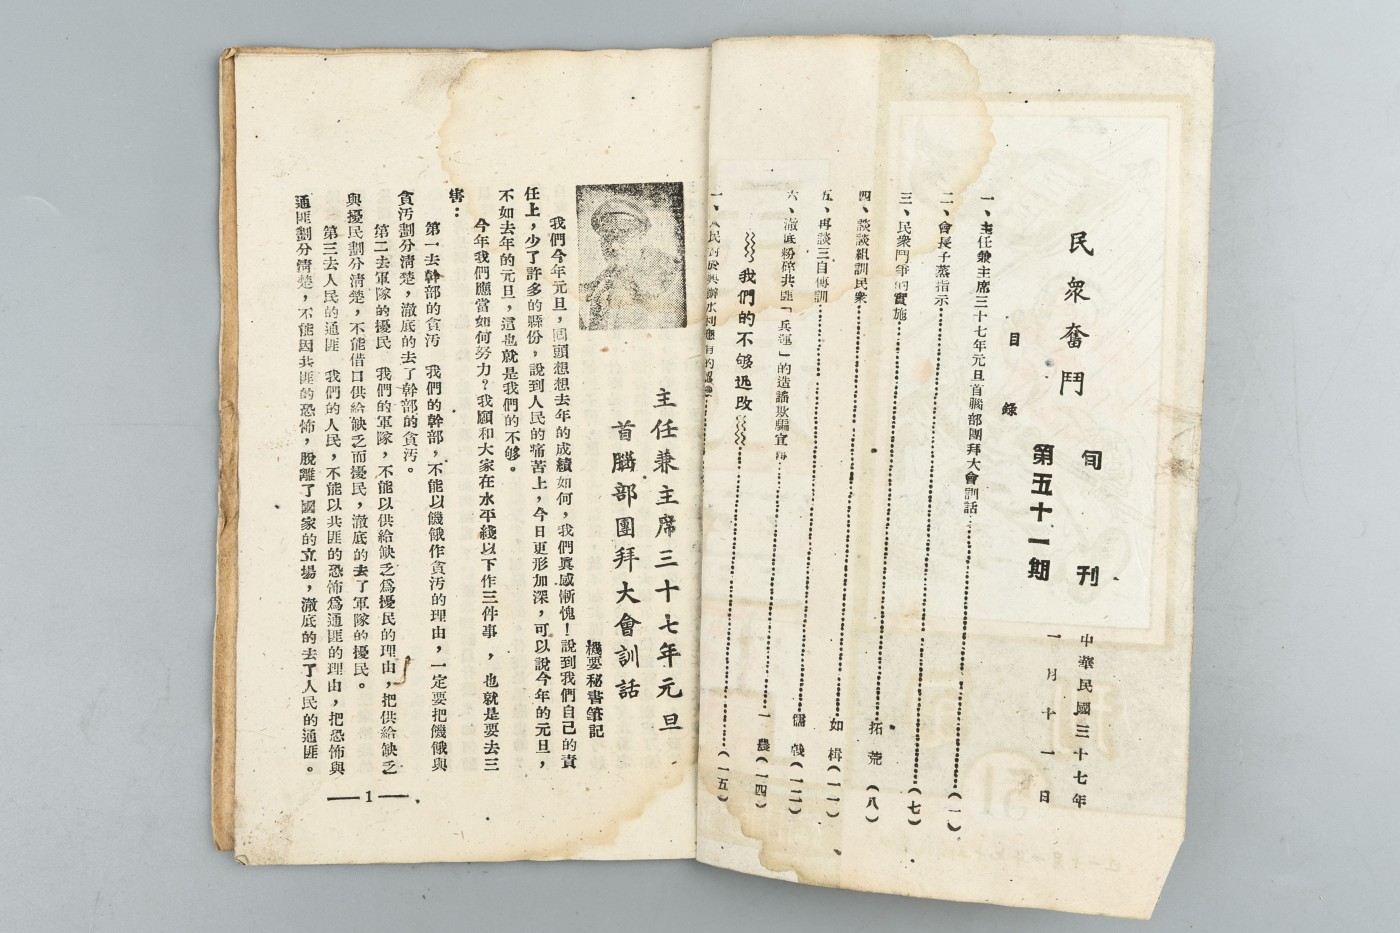 民衆奮鬥 旬刊
中華民國三十七年
第五十一期
一月十一日
目錄
一、主任兼主席三十七年元旦首腦部團拜大會訓話……(一)
二、會長子蒸指示……(七)
三、民衆鬥爭的實施……(八)
四、談談組訓民衆……拓荒
五、再談三自傳訓……如楫(一一)
六、澈底粉碎共匪「兵運」的造謠欺騙宣……儒戟(一二)
我們的不够迅改……一農(一四)
一、人民對於興辦水利應有的認……(一五)
主任兼主席三十七年元旦
首腦部團拜大會訓話
機要秘書筆記
我們今年元旦,回頭想想去年的成績如何,我們眞感慚愧!說到我們自己的責
任上,少了許多的縣份,說到人民的痛苦上,今日更形加深,可以說今年的元旦,
不如去年的元旦,這也就是我們的不够。
今年我們應當如何努力?我願和大家在水平綫以下作三件事,也就是要去三
害:
第一去幹部的貪污 我們的幹部,不能以饑餓作貪污的理由,一定要把饑餓與
貪污劃分清楚,澈底的去了幹部的貪污。
第二去軍隊的擾民 我們的軍隊,不能以供給缺乏爲擾民的理由,把供給缺乏
與擾民劃分清楚,不能借口供給缺乏而擾民,澈底的去了軍隊的擾民。
第三去人民的通匪 我們的人民,不能以共匪的恐怖爲通匪的理由,把恐怖與
通匪劃分清楚,不能因共匪的恐怖,脫離了國家的立場,澈底的去了人民的通匪。
1